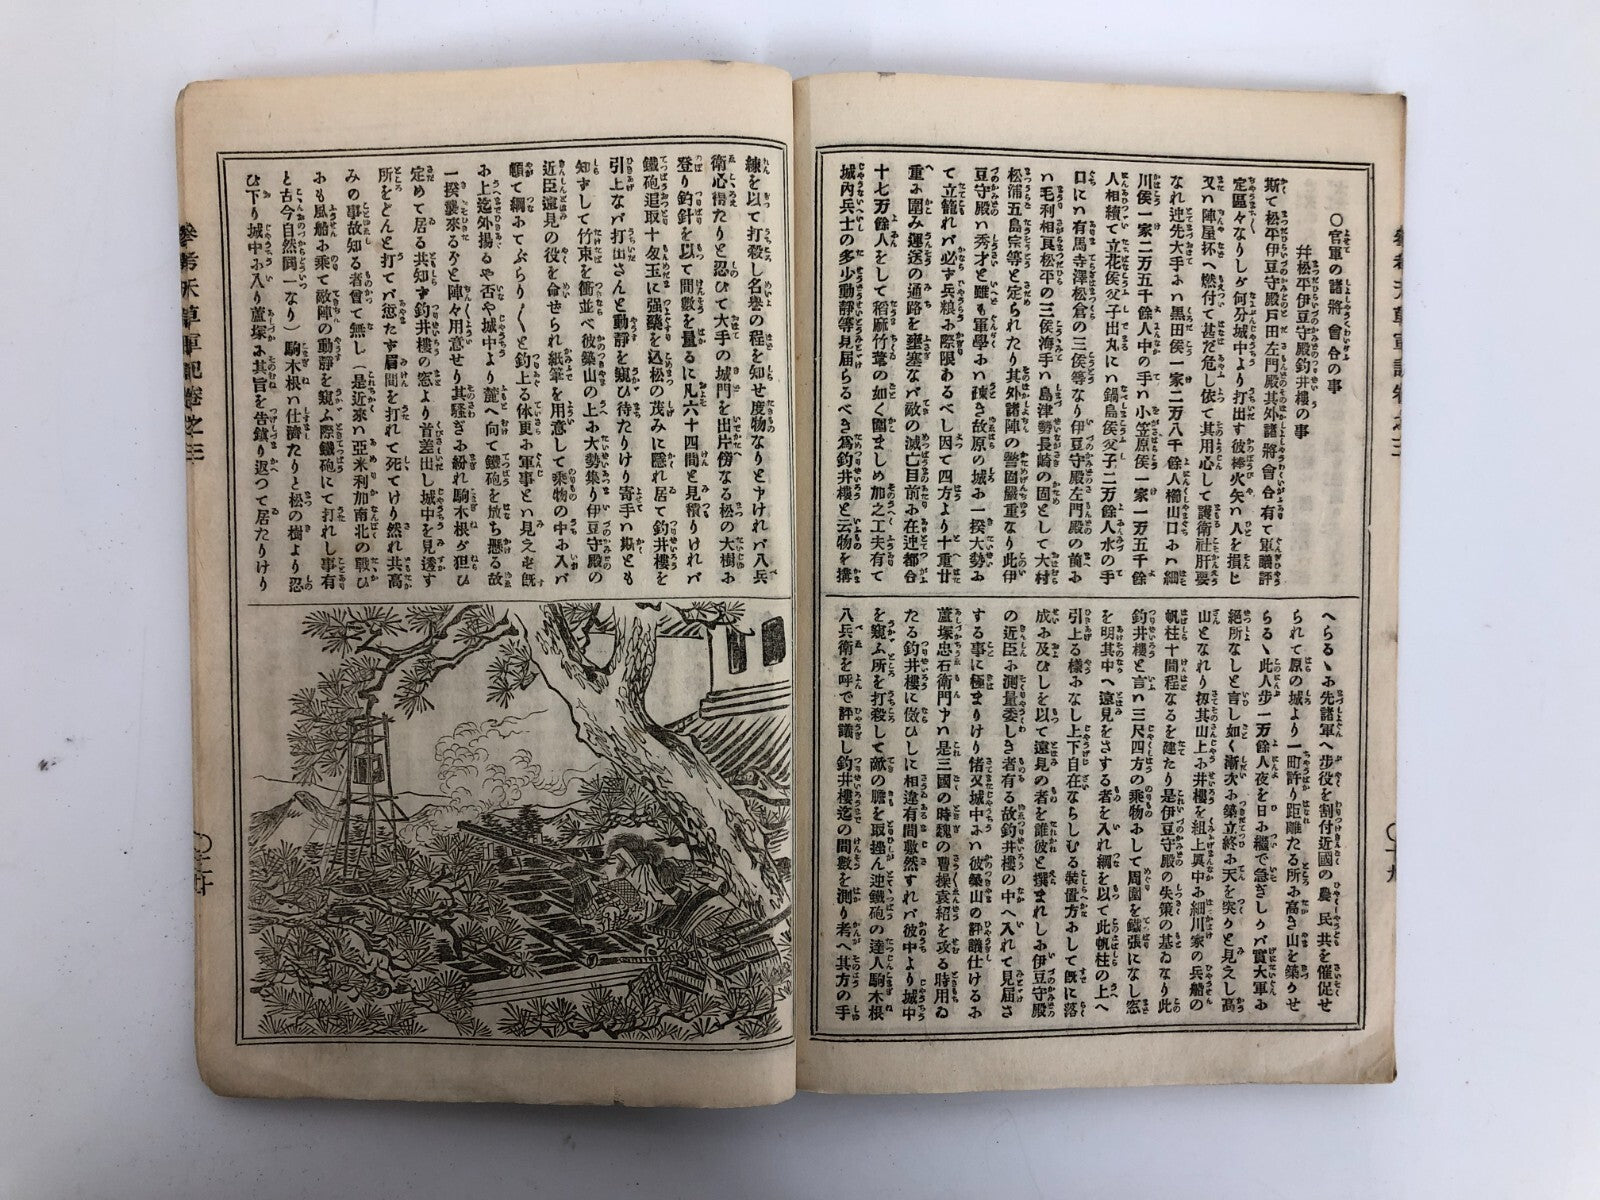 ○官軍の諸將會合の事
幷松平伊豆守殿釣井樓の事
斯て松平伊豆守殿戸田左門殿其外諸將會合有て軍議評
定區々なりしが何分城中より打出す彼棒火矢にて人を損じ
又ハ陣屋抔へ燃付て甚だ危し依て其用心して護衛社肝要
なれ迚先大手ハ黒田侯一家二万八千餘人櫓山口ハ細
川侯一家二万五千餘人中の手ハ小笠原侯一家一万五千餘
人相續て立花侯父子出丸にハ鍋島侯父子二万餘人水の手
口にハ有馬寺澤松倉の三侯等なり伊豆守殿左門殿の前に
ハ毛利相良松平の三侯海手ハ島津勢長崎の固として大村
松浦五島宗等と定られたり其外諸陣の警固嚴重なり此伊
豆守殿ハ秀才と雖も軍學に疎き故原の城に一揆大勢に
て立籠れバ必ず兵粮に際限あるべし因て四方より十重廿
重に圍み運送の通路を壅塞なバ敵の滅亡目前に在迚都合
十七万餘人をして稻麻竹葦の如く圍ましめ加之工夫有て
城内兵士の多少動靜等見届らるべき爲釣井樓と云物を搆
へらるゝに先諸軍へ步役を割付近國の農民共を催促せ
られて原の城より一町許り距離たる所に高き山を築かせ
らるゝ此人步一万餘人夜を日に繼で急ぎしかバ實大軍に
絕所なしと言し如く漸次に築立終に天を突かと見えし高
山となれり扨其山上に井樓を組上眞中に細川家の兵船の
帆柱十間程なるを建たり是伊豆守殿の失策の基ゐなり此
釣井樓と言ハ三尺四方の乘物にして周圍を鐵張になし窓
を明其中へ遠見をさする者を入れ綱を以て此帆柱の上へ
引上る樣になし上下自在ならしむる裝置方にして既に落
成に及びしを以て遠見の者を誰彼と撰まれしに伊豆守殿
の近臣に測量委しき者有る故釣井樓の中へ入れて見届さ
する事に極まりけり偖又城中にハ彼築山の評議仕けるに
蘆塚忠右衛門ハ是三國の時魏の曹操袁紹を攻る時用ゐ
たる釣井樓に倣ひしに相違有間敷然すれバ彼中より城中
を窺ふ所を打殺して敵の膽を取挫ん迚鐵砲の達人駒木根
八兵衛を呼で評議し釣井樓迄の間數を測り考へ其方の手
練を以て打殺し名譽の程を知せ度物なりと有けれバ八兵
衛心得たりと忍びて大手の城門を出片傍なる松の大樹に
登り釣針を以て間數を量るに凡六十四間と見積りけれバ
鐵砲追取十匁玉に強藥を込松の茂みに隱れ居て釣井樓を
引上なバ打出さんと動靜を窺ひ待たりけり寄手ハ斯とも
知ずして竹束を衝並べ彼築山の上に大勢集り伊豆守殿の
近臣遠見の役を命せられ紙筆を用意して乘物の中に入バ
頓て綱にてぶらり〱と釣上る体更に軍事とハ見えず既
に上迄外揚るや否や城中より麓へ向て鐵砲を放ち懸る故
一揆襲來るかと陣々用意せり其騷ぎに紛れ駒木根が狙ひ
定めて居る共知ず釣井樓の窓より首差出し城中を見透す
所をどんと打てバ怠たず眉間を打れて死てけり然れ共高
みの事故知る者曾て無し（是近來ハ亞米利加南北の戰ひ
にも風船に乘て敵陣の動靜を窺ふ際鐵砲にて打れし事有
と古今自然同一なり）駒木根ハ仕濟たりと松の樹より忍
び下り城中に入り蘆塚に其旨を告鎭り返つて居たりけり
參考天草軍記卷之三
○二十
參考天草軍記卷之三
○十九